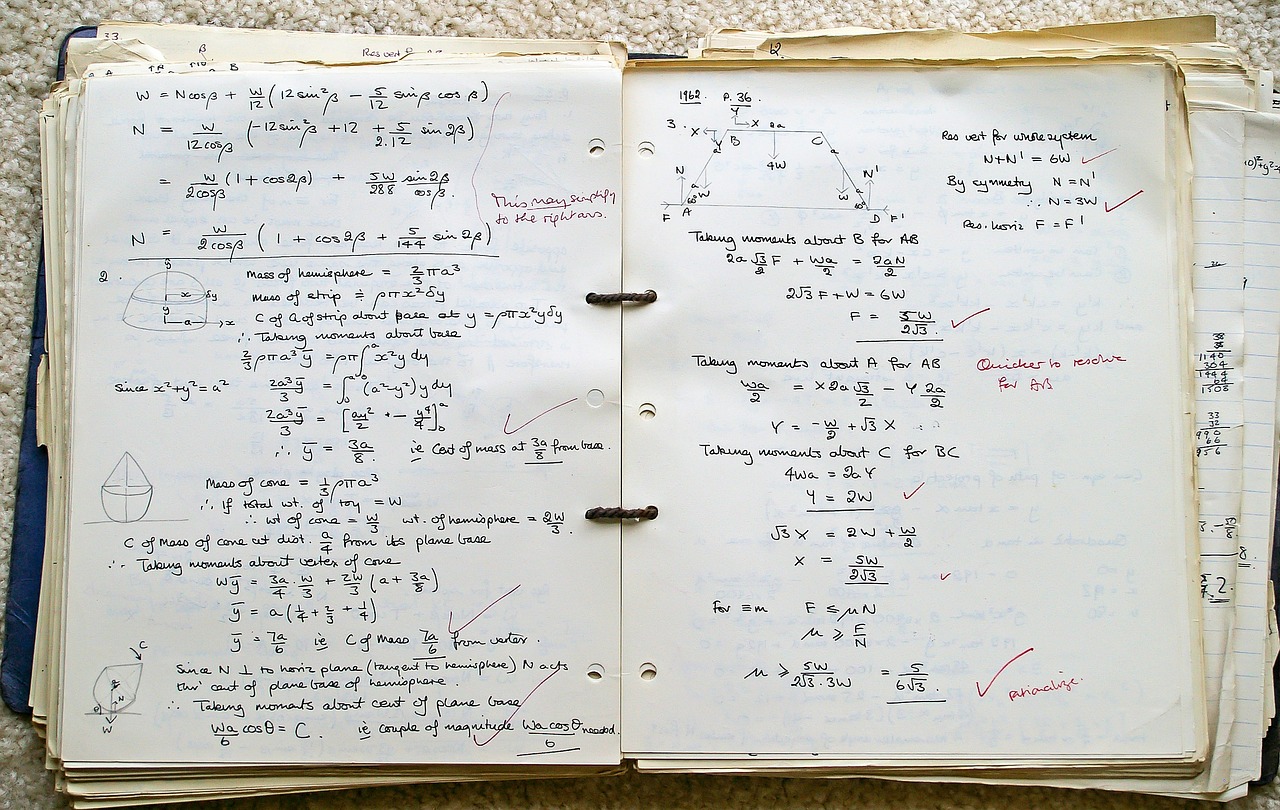 33.
β
Res vert
A B
W = N cos β + W/12 (12 sin²β − 5/12 sin β cos β)
N = W/(12 cos β) (−12 sin²β + 12 + 5/2.12 sin 2β)
= W/(2 cos β) (1 + cos 2β) + 5W/288 sin 2β/cos β.
This may simplify
to the right ans.
N = W/(2 cos β) (1 + cos 2β + 5/144 sin 2β)
2.
y
x δy
y
a x
Mass of hemisphere = 2/3 πa³
Mass of strip ≑ ρπx²δy
C of G of strip about base at y = ρπx²yδy
∴ Taking moments about base
2/3 ρπa³ȳ = ρπ∫₀ᵃ x²y dy
Since x²+y² = a² 2a³ȳ/3 = ∫₀ᵃ (a²−y²) y dy
2a³ȳ/3 = [ay²/2 − y⁴/4]₀ᵃ
∴ ȳ = 3a/8 ie Cent of mass at 3a/8 from base.
Mass of cone = 1/3 ρπa³
∴ If total wt. of toy = W
∴ wt of cone = W/3 wt. of hemisphere = 2W/3.
C of Mass of cone at dist. a/4 from its plane base
∴ Taking moments about vertex of cone
Wȳ = 3a/4 . W/3 + 2W/3 (a + 3a/8)
ȳ = a(1/4 + 2/3 + 1/4)
ȳ = 7a/6 ie C of Mass 7a/6 from vertex.
C
N
θ
W
Since N ⊥ to horiz plane (tangent to hemisphere) N acts
thro' cent of plane base of hemisphere.
∴ Taking moments about cent of plane base
Wa/6 cos θ = C. ie couple of magnitude Wa cos θ/6 needed.
62.
1962. P. 36.
3.
Y
X X 2a
Y B C
a a
4W
N N'
a W W a
60° 60°
F A D F'
Res vert for whole system
N+N' = 6W
By symmetry N = N'
∴ N = 3W
Res. horiz F = F'
Taking moments about B for AB
2a √3/2 F + Wa/2 = 2aN/2
2√3 F + W = 6W
F = 5W/2√3.
Taking moments about A for AB
Quicker to resolve
for AB
Wa/2 = X 2a √3/2 − Y 2a/2
Y = −W/2 + √3 X
Taking moments about C for BC
4Wa = 2aY
Y = 2W
√3 X = 2W + W/2
X = 5W/2√3
For ≡m F ≤ μN
μ ≥ F/N
μ ≥ 5W/(2√3 . 3W) = 5/6√3.
rationalize.
38
38
1140
304
1444
64
1508
33
32
990
66
956